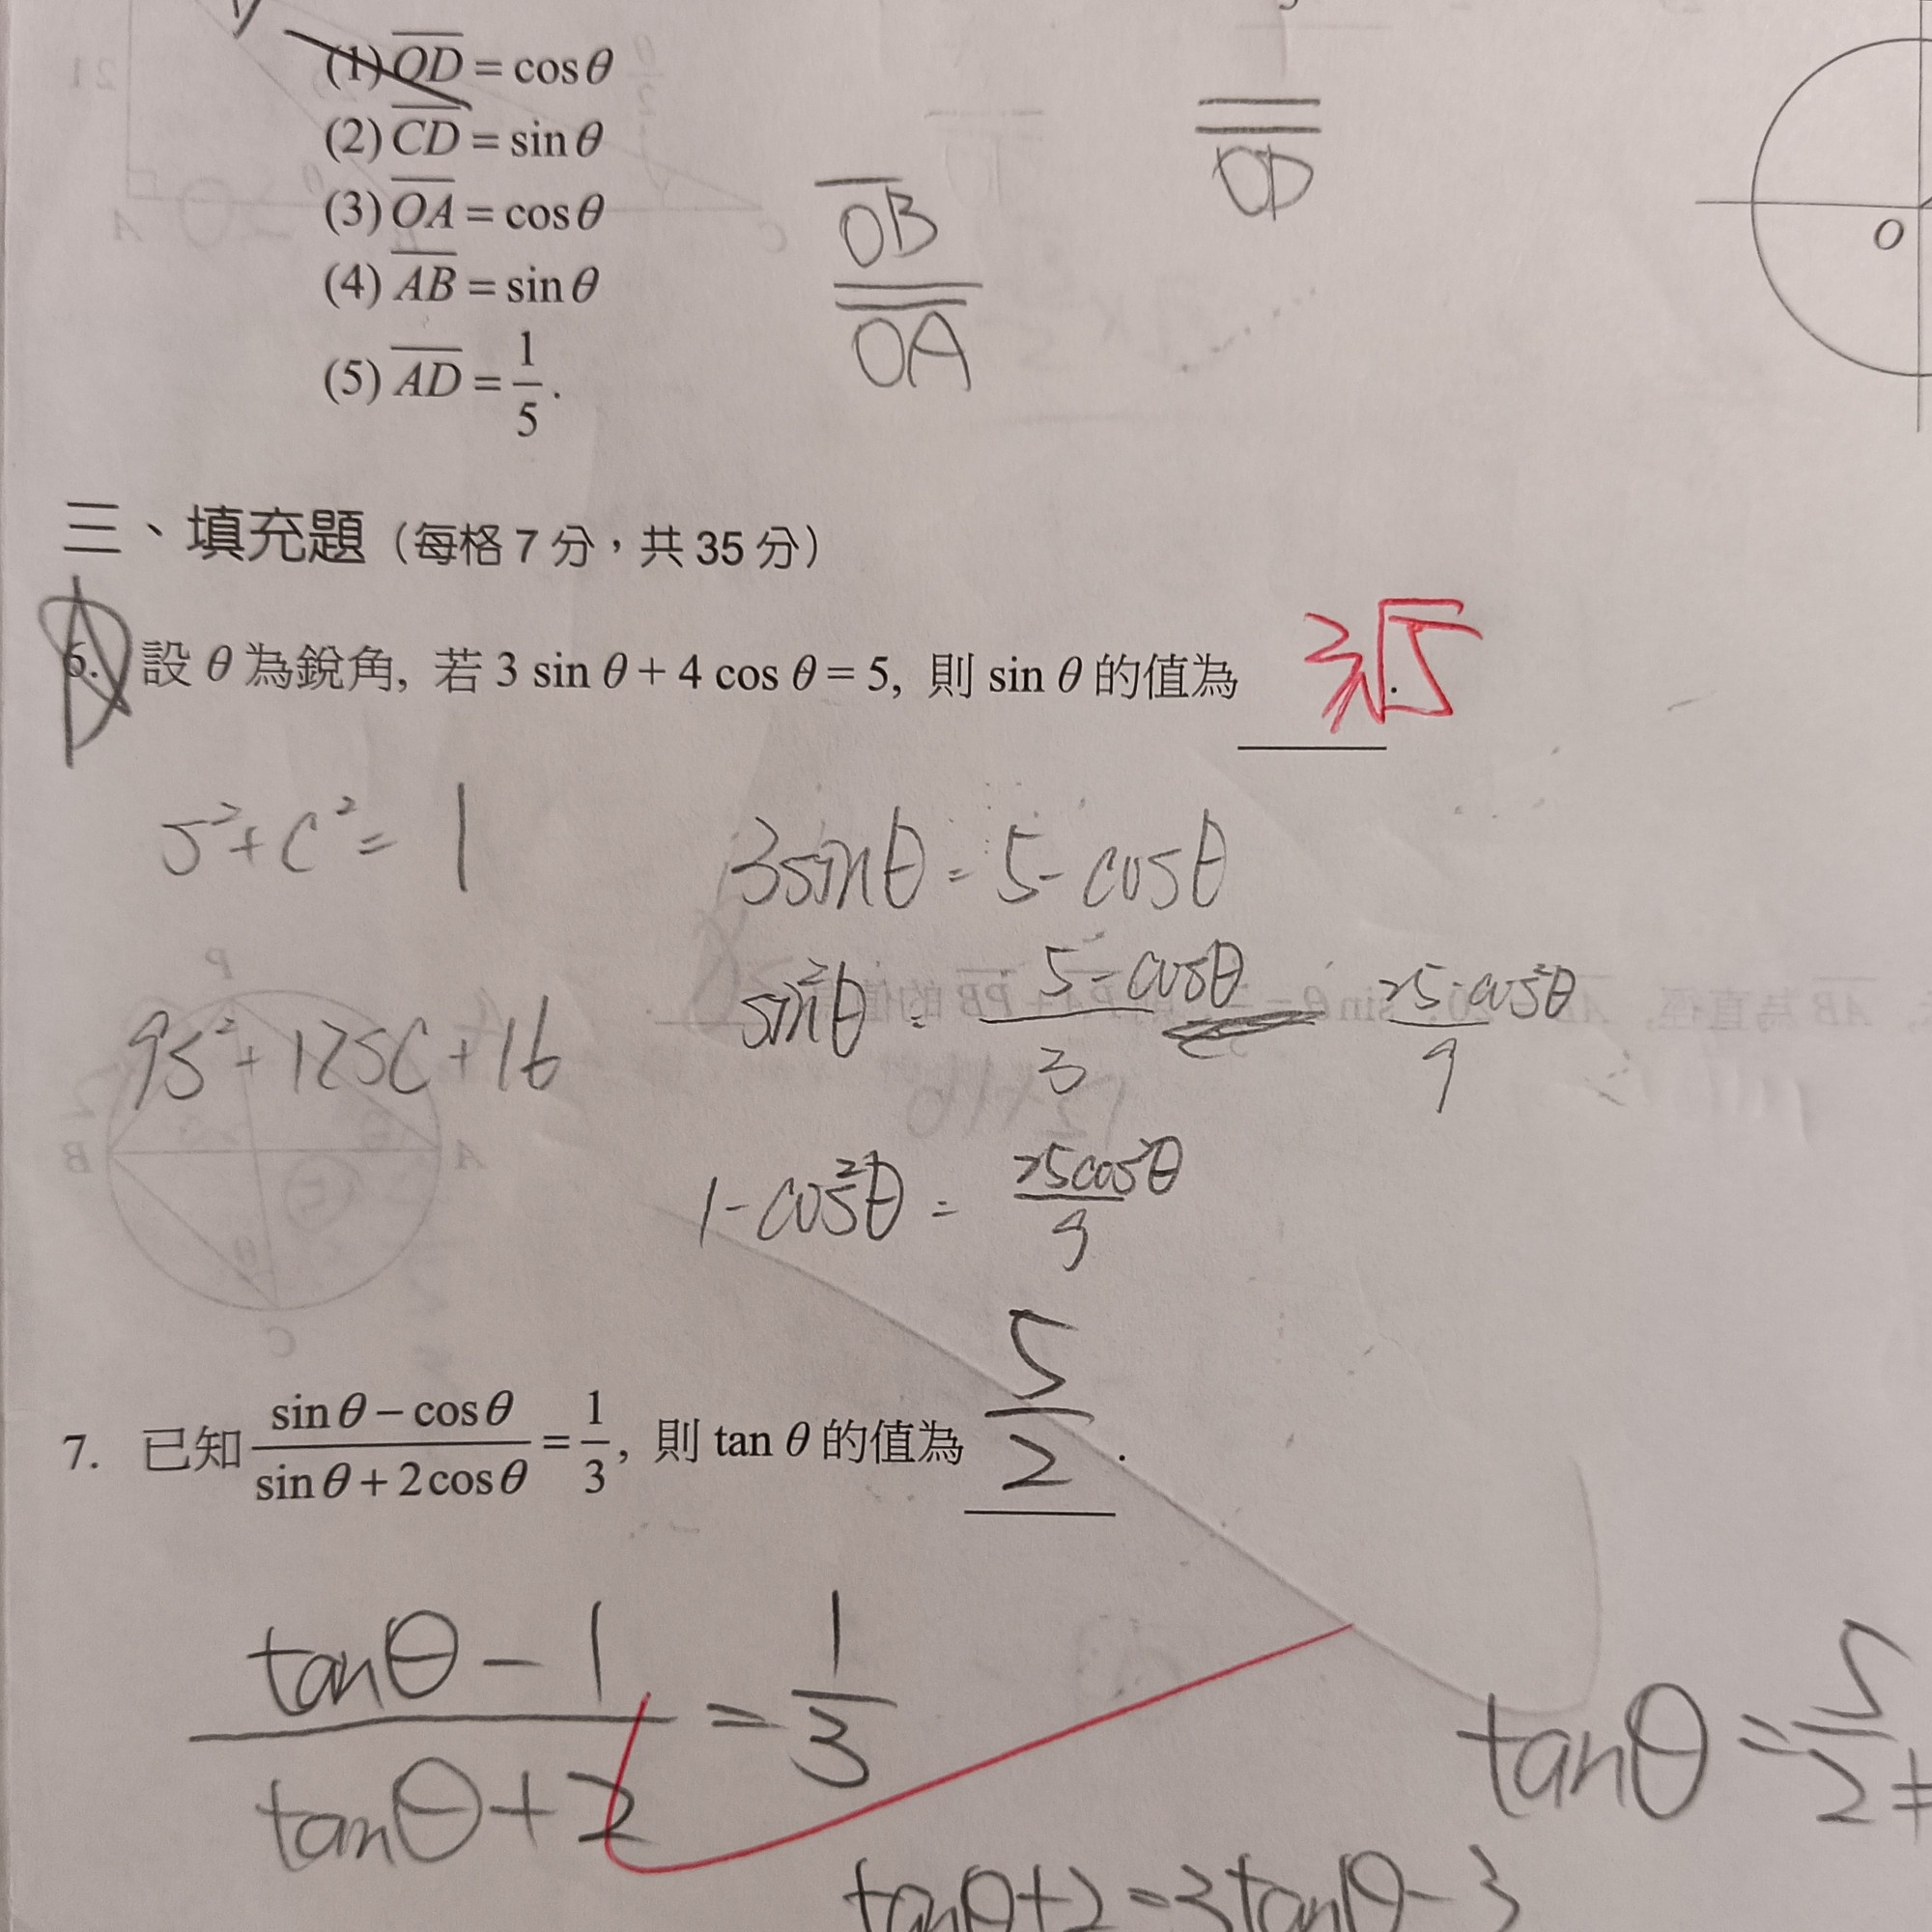 (1) OD = cosθ
(2) CD = sinθ
(3) OA = cosθ
(4) AB = sinθ
(5) AD = 1/5 .
OB
OA
OD
O
三、填充題（每格 7 分，共 35 分）
6. 設 θ 為銳角, 若 3 sin θ + 4 cos θ = 5, 則 sin θ 的值為
.
s² + c² = 1
9s² + 12sc + 16
3sinθ = 5 - cosθ
sin²θ = 5 - cosθ / 3
25 - cos²θ / 9
1 - cos²θ = 25cos²θ / 9
7. 已知 sinθ − cosθ / sinθ + 2cosθ = 1/3, 則 tan θ 的值為 5/2 .
tanθ - 1 / tanθ + 2 = 1/3
tanθ = 5/2
tanθ + 2 = 3tanθ - 3